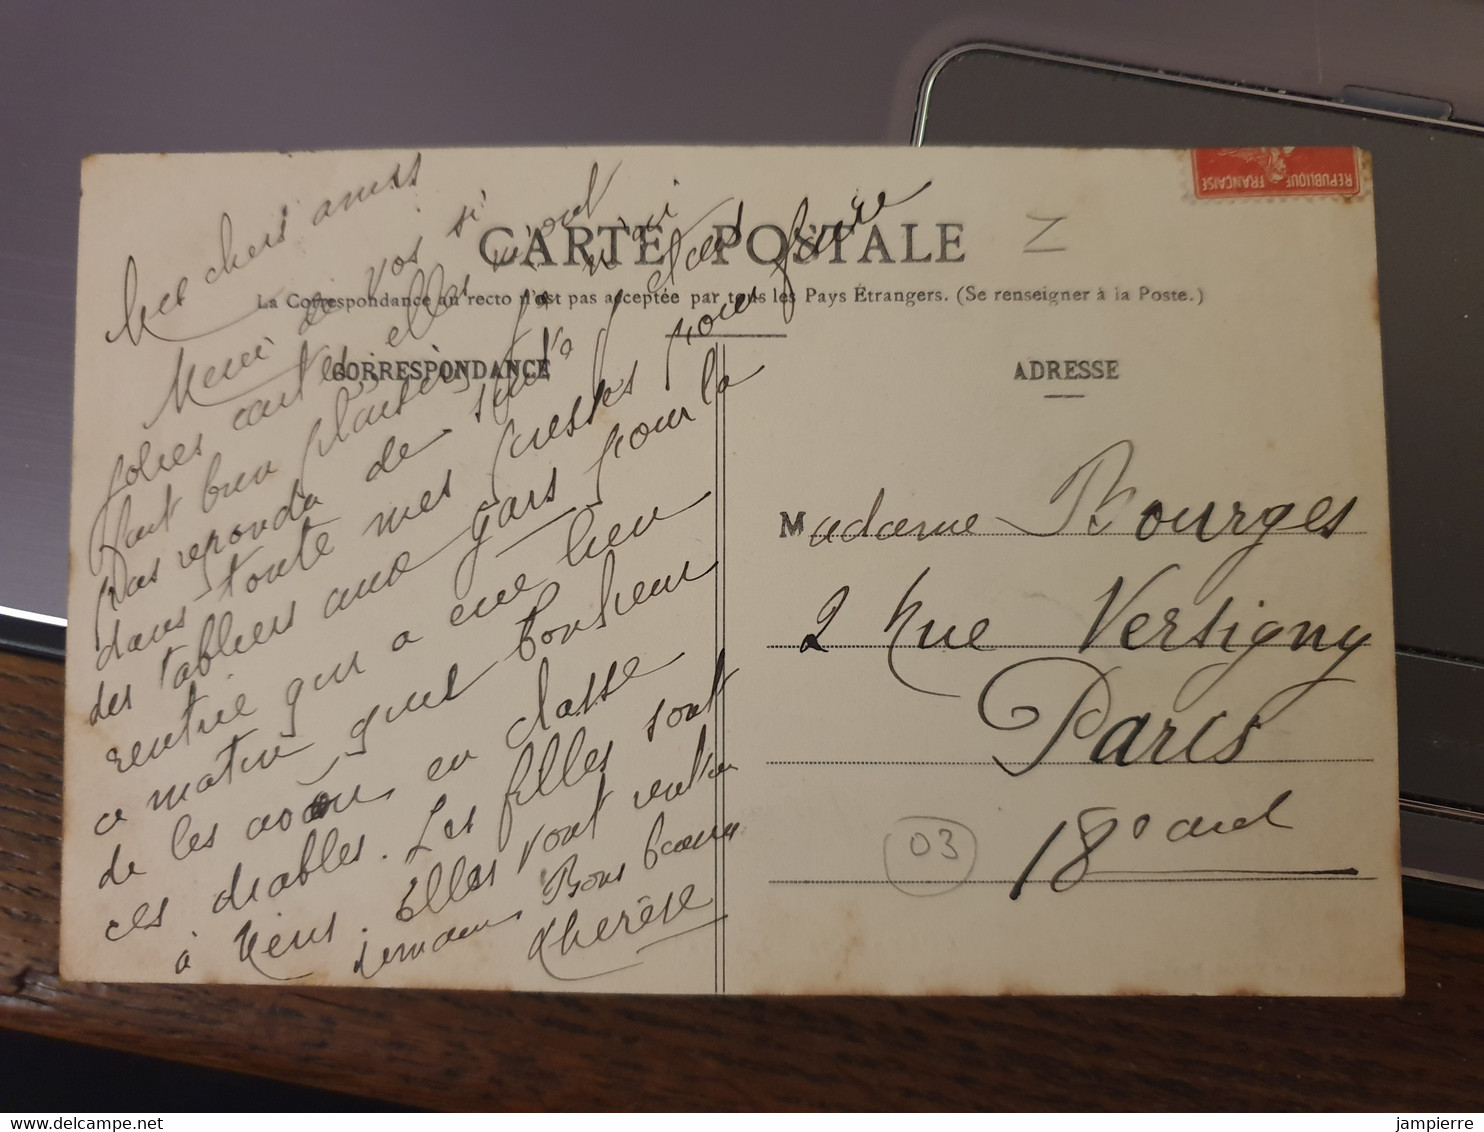 Mes chers amis
Merci de vos si
jolies cartes elles m'ont
fait bien plaisir. Je n'ai
pas repondu de suite
dans toute mes presses j'étais pour faire
des tabliers aux gars pour la
rentrée qui a eue lieu
ce matin quel bonheur
de les avoir en classe
ces diables. Les filles sont
à Reims. Elles vont rentrer
demain Bons
Therèse
CARTE POSTALE
La Correspondance au recto n'est pas acceptée par tous les Pays Étrangers. (Se renseigner à la Poste.)
CORRESPONDANCE
ADRESSE
Madame Bourges
2 Rue Versigny
Paris
18º ard
03
Z
REPUBLIQUE FRANÇAISE
jampierre
www.delcampe.net